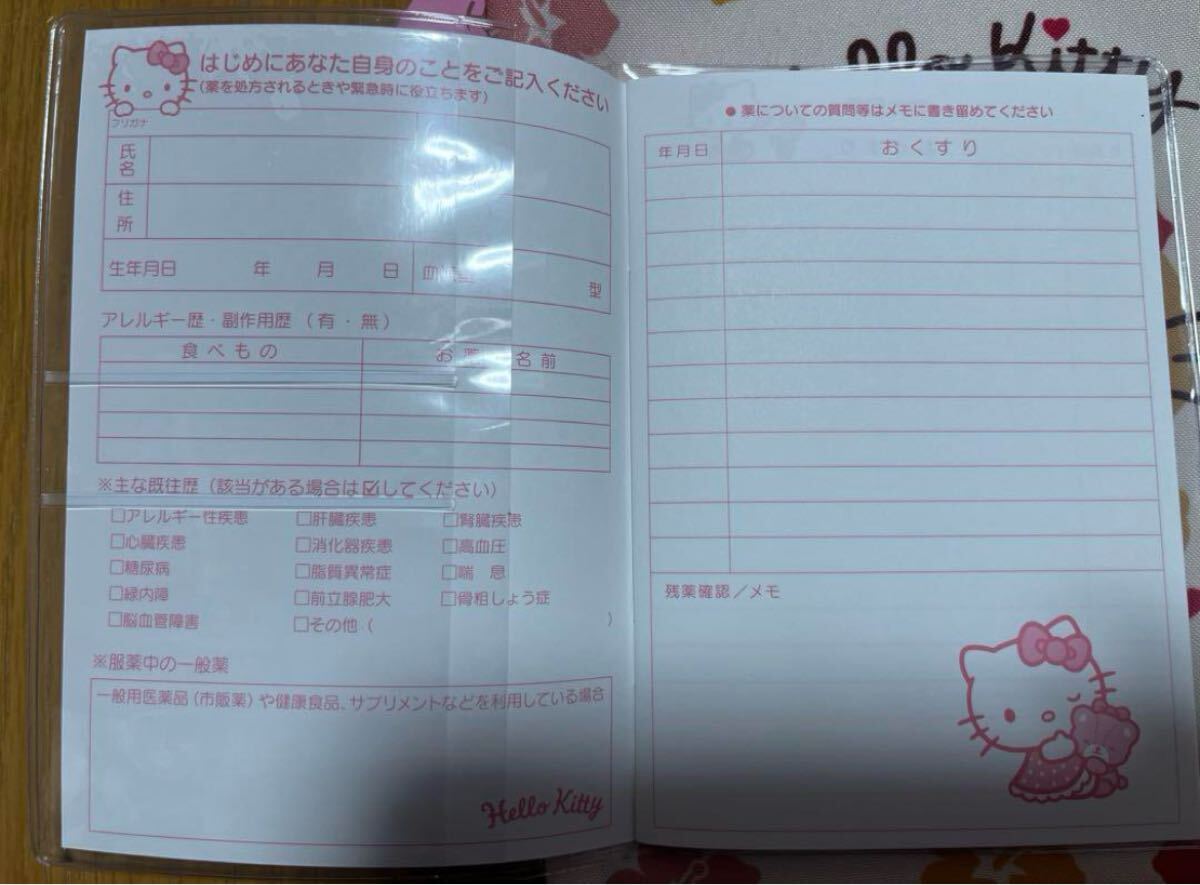 はじめにあなた自身のことをご記入ください
(薬を処方されるときや緊急時に役立ちます)
フリガナ
氏名
住所
生年月日 年 月 日 血液型 型
アレルギー歴・副作用歴（有・無）
食べもの お薬 名前
※主な既往歴（該当がある場合は☑してください）
□アレルギー性疾患 □肝臓疾患 □腎臓疾患
□心臓疾患 □消化器疾患 □高血圧
□糖尿病 □脂質異常症 □喘 息
□緑内障 □前立腺肥大 □骨粗しょう症
□脳血管障害 □その他（ ）
※服薬中の一般薬
一般用医薬品（市販薬）や健康食品、サプリメントなどを利用している場合
Hello Kitty
●薬についての質問等はメモに書き留めてください
年月日 おくすり
残薬確認／メモ
Kitty